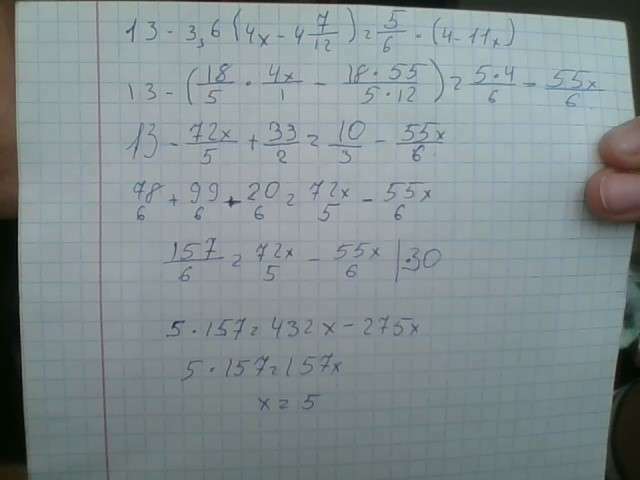 13 - 3,6 (4x - 4 7/12) = 5/6 · (4 - 11x)
13 - (18/5 · 4x/1 - 18·55/5·12) = 5·4/6 - 55x/6
13 - 72x/5 + 33/2 = 10/3 - 55x/6
78/6 + 99/6 - 20/6 = 72x/5 - 55x/6
157/6 = 72x/5 - 55x/6 |·30
5·157 = 432x - 275x
5·157 = 157x
x = 5